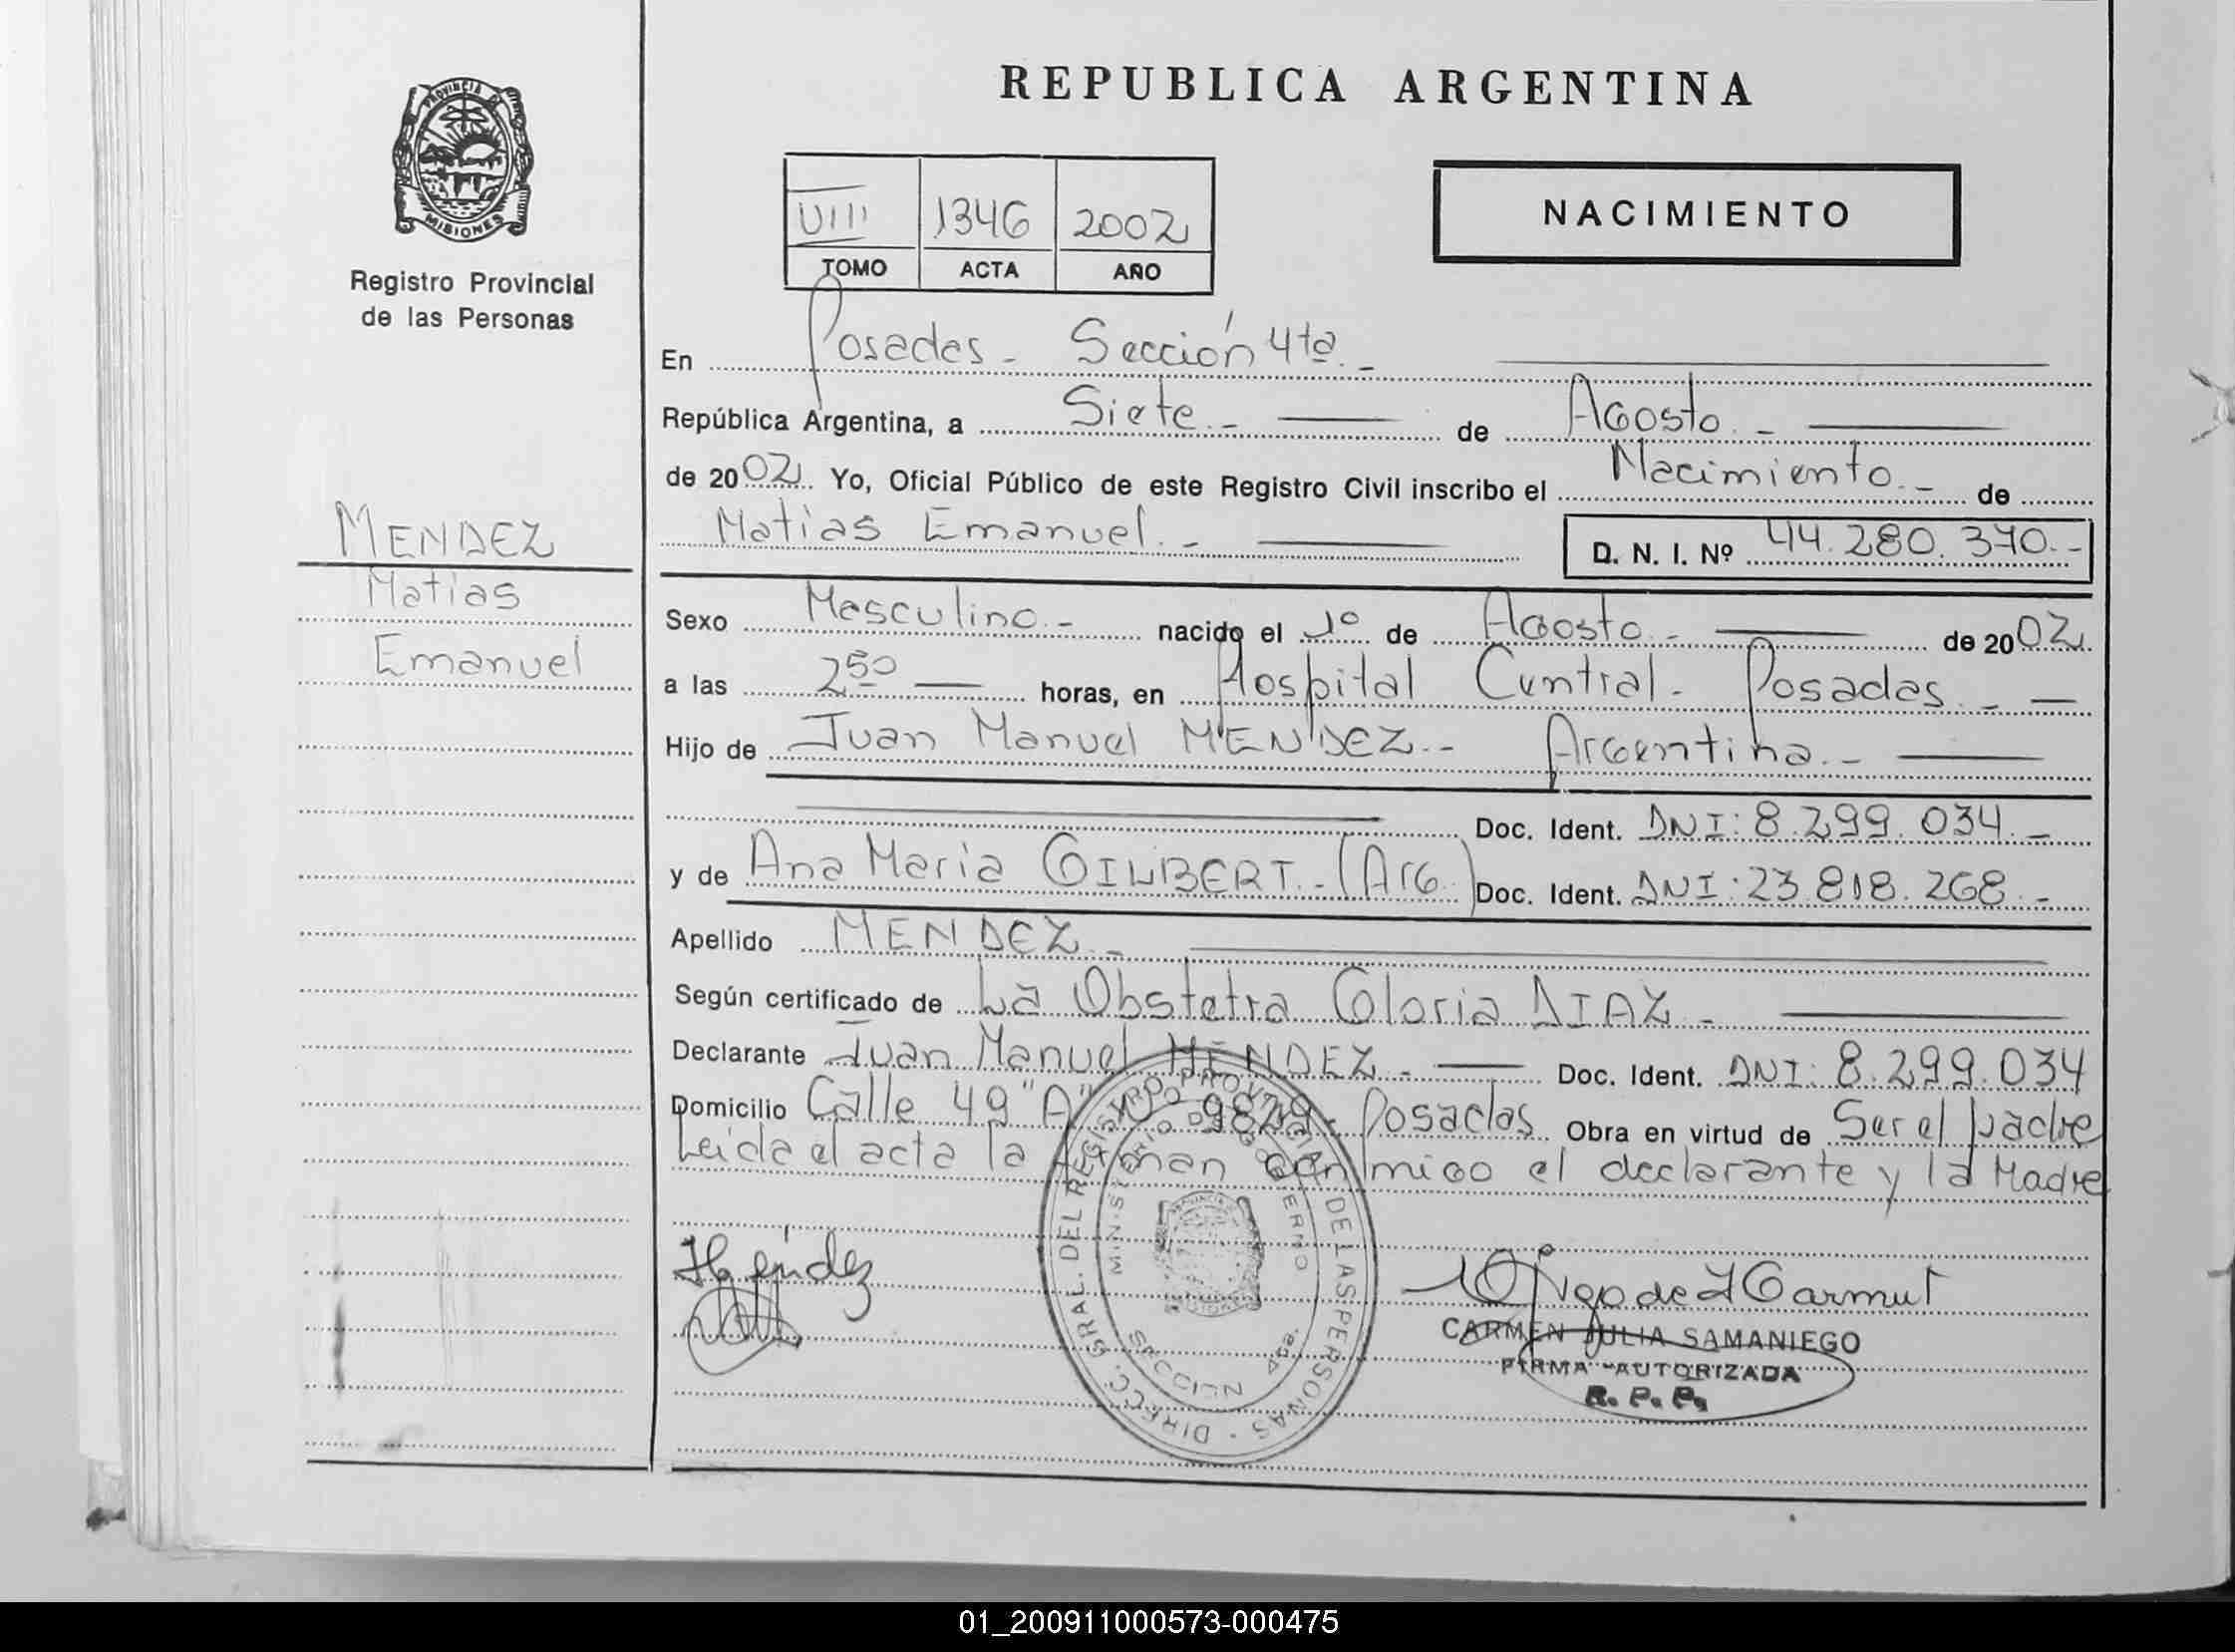 REPUBLICA ARGENTINA
PROVINCIA DE
MISIONES
Registro Provincial
de las Personas
VIII 1346 2002
TOMO ACTA AÑO
NACIMIENTO
En Posadas - Sección 4ta. -
República Argentina, a Siete. - de Agosto. -
de 2002. Yo, Oficial Público de este Registro Civil inscribo el Nacimiento. - de
Matias Emanuel. - D. N. I. Nº 44.280.370. -
MENDEZ
Matias
Emanuel
Sexo Masculino. - nacido el 1º de Agosto. - de 2002.
a las 2 50 horas, en Hospital Central. Posadas. -
Hijo de Juan Manuel MENDEZ. - Argentina. -
Doc. Ident. DNI: 8.299.034. -
y de Ana Maria GILBERT. - (Arg.) Doc. Ident. DNI: 23.818.268. -
Apellido MENDEZ -
Según certificado de La Obstetra Gloria DIAZ -
Declarante Juan Manuel MENDEZ. - Doc. Ident. DNI: 8.299.034
Domicilio Calle 49 "A" Nº 9829. Posadas Obra en virtud de Ser el padre
Leida el acta la firman conmigo el declarante y la Madre
DIRECC. GRAL. DEL REGISTRO PROVINCIAL DE LAS PERSONAS
MINISTERIO DE GOBIERNO
PROVINCIA
MISIONES
SECCION 4ta.
Méndez
CARMEN JULIA SAMANIEGO
FIRMA AUTORIZADA
R. P. P.
01_200911000573-000475